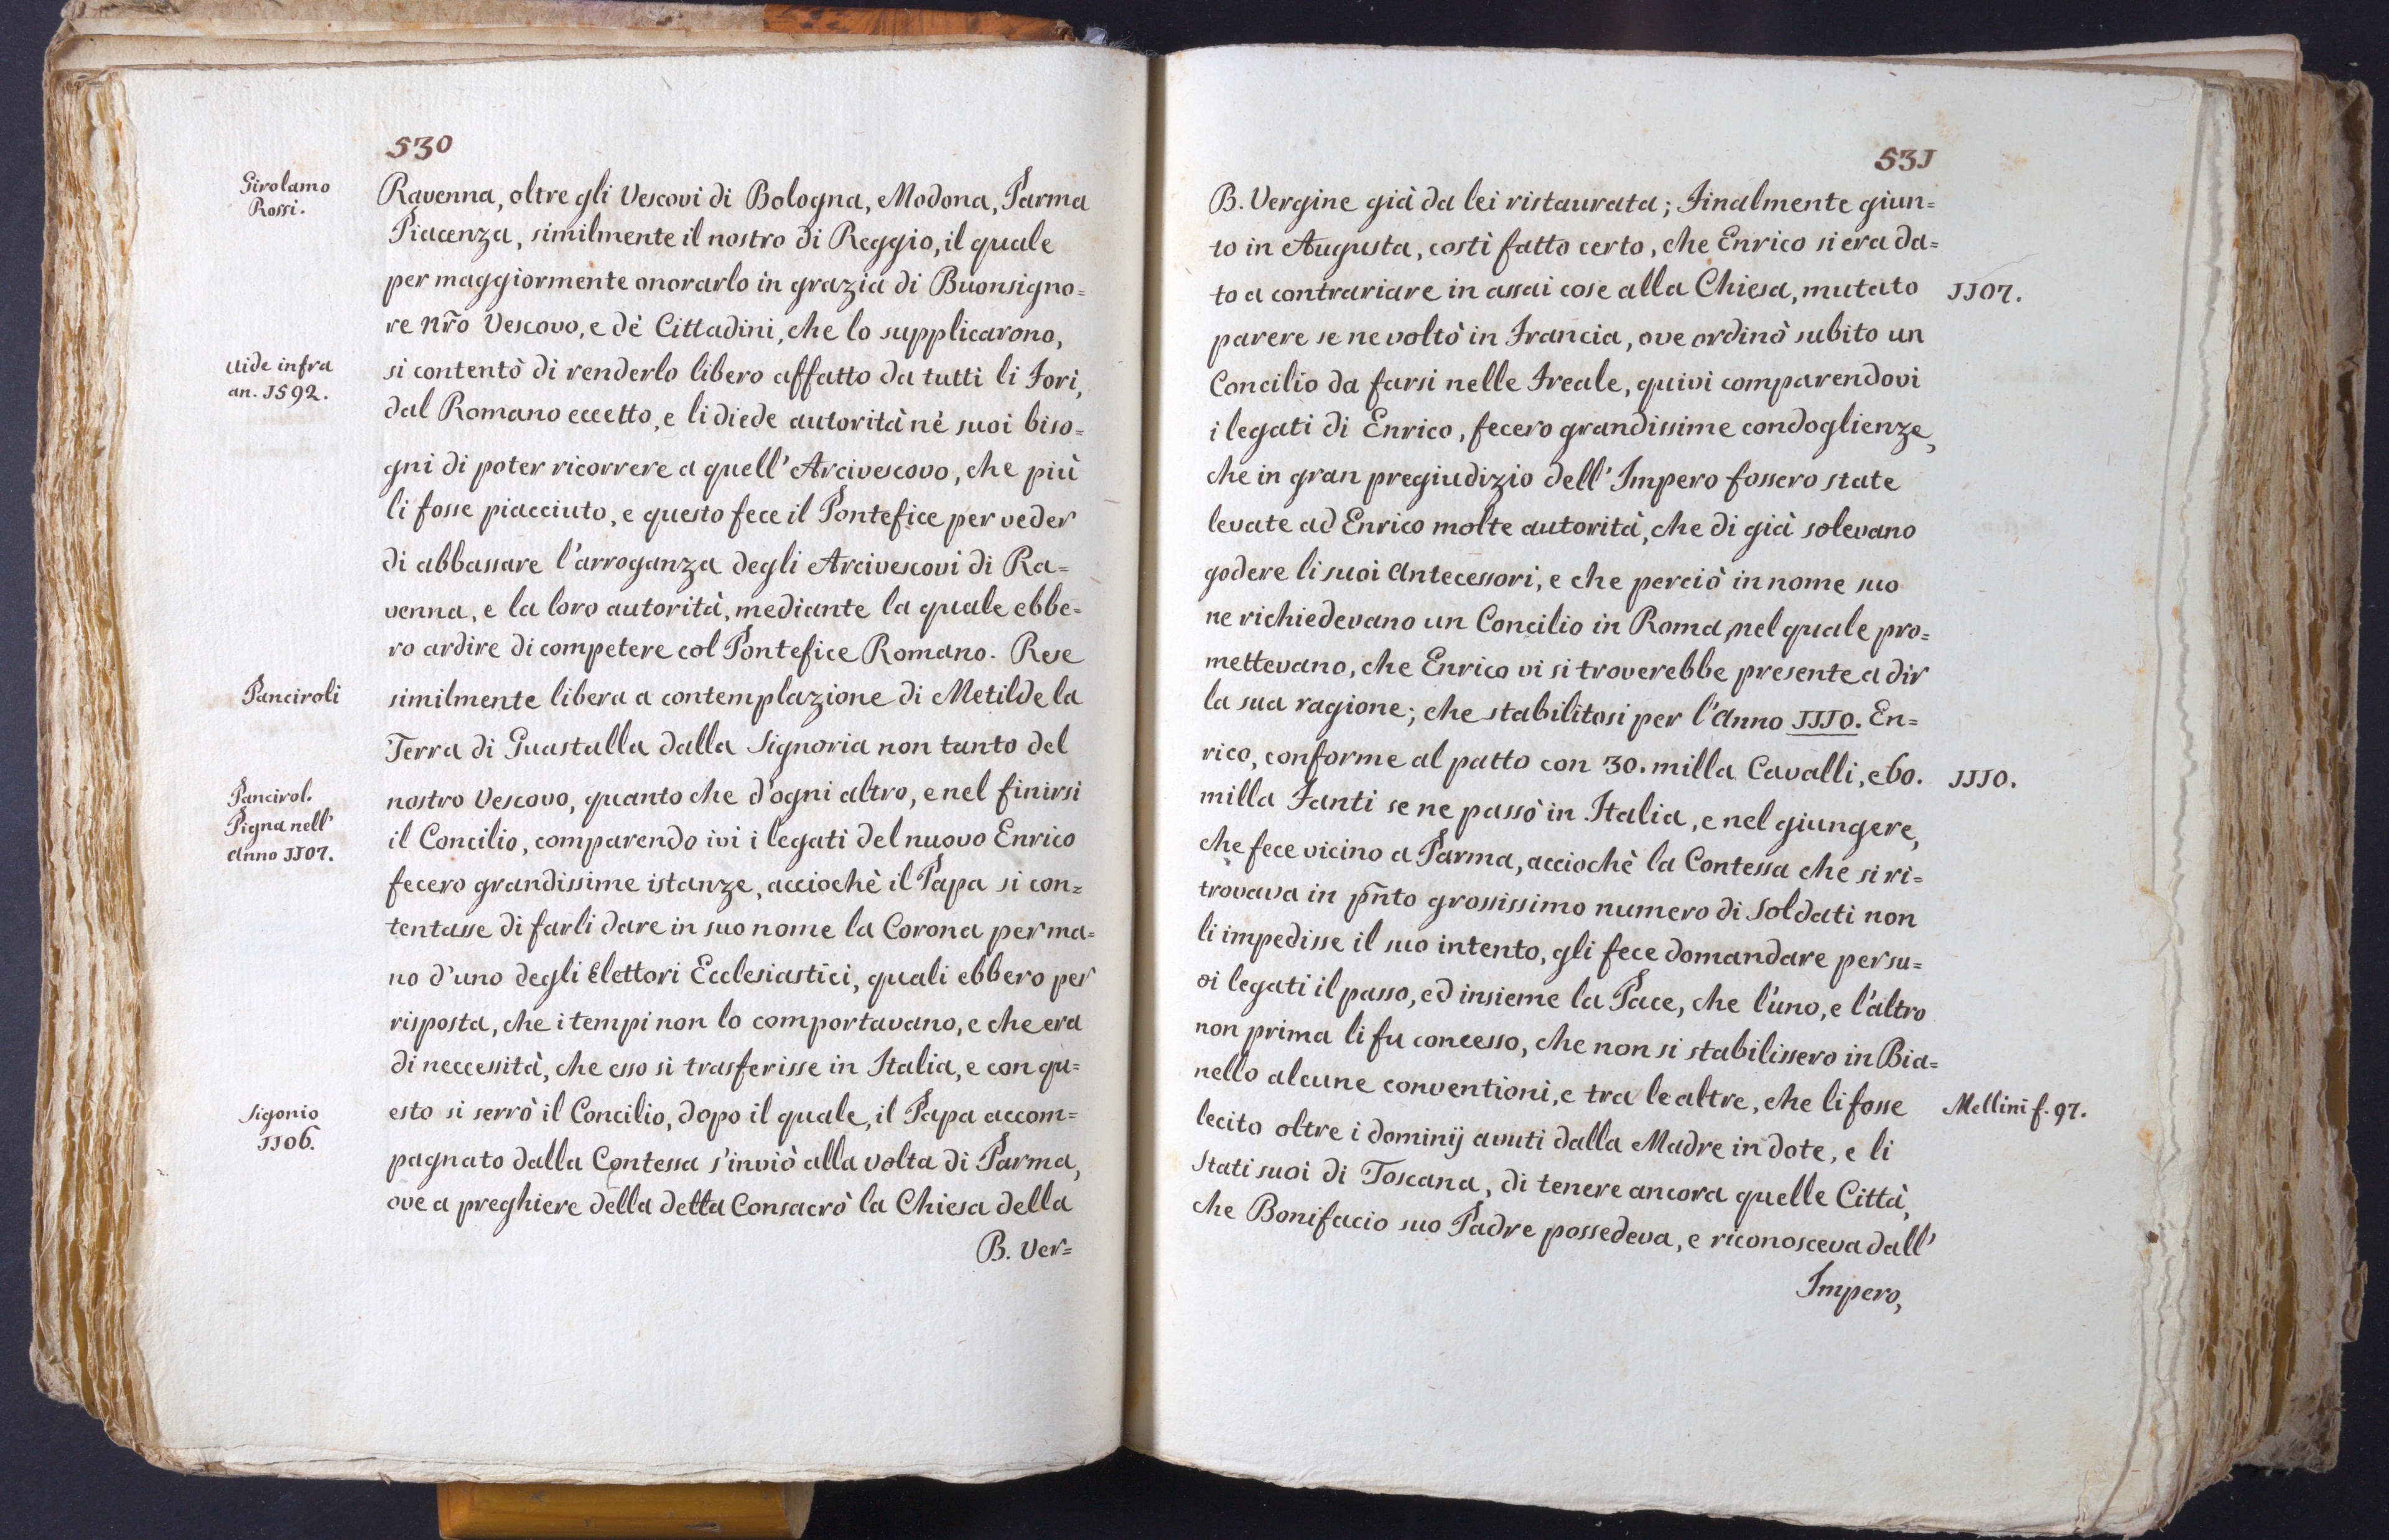 530
Girolamo
Rossi.
Ravenna, oltre gli Vescovi di Bologna, Modona, Parma
Piacenza, similmente il nostro di Reggio, il quale
per maggiormente onorarlo in grazia di Buonsigno=
re nr̃o Vescovo, e dè Cittadini, che lo supplicarono,
Vide infra
an. 1592.
si contentò di renderlo libero affatto da tutti li Fori,
dal Romano eccetto, e li diede autorità nè suoi biso=
gni di poter ricorrere a quell' Arcivescovo, che più
li fosse piacciuto, e questo fece il Pontefice per veder
di abbassare l'arroganza degli Arcivescovi di Ra=
venna, e la loro autorità, mediante la quale ebbe=
ro ardire di competere col Pontefice Romano. Rese
Panciroli
similmente libera a contemplazione di Metilde la
Terra di Guastalla dalla Signoria non tanto del
Pancirol.
Pigna nell'
Anno 1107.
nostro Vescovo, quanto che d'ogni altro, e nel finirsi
il Concilio, comparendo ivi i legati del nuovo Enrico
fecero grandissime istanze, acciochè il Papa si con=
tentasse di farli dare in suo nome la Corona per ma=
no d'uno degli Elettori Ecclesiastici, quali ebbero per
risposta, che i tempi non lo comportavano, e che era
di neccessità, che esso si trasferisse in Italia, e con qu=
Sigonio
1106.
esto si serrò il Concilio, dopo il quale, il Papa accom=
pagnato dalla Contessa s'inviò alla volta di Parma,
ove a preghiere della detta Consacrò la Chiesa della
B. Ver=
531
B. Vergine già da lei ristaurata; Finalmente giun=
to in Augusta, costì fatto certo, che Enrico si era da=
to a contrariare in assai cose alla Chiesa, mutato
1107.
parere se ne voltò in Francia, ove ordinò subito un
Concilio da farsi nelle Freale, quivi comparendovi
i legati di Enrico, fecero grandissime condoglienze,
che in gran pregiudizio dell' Impero fossero state
levate ad Enrico molte autorità, che di già solevano
godere li suoi Antecessori, e che perciò in nome suo
ne richiedevano un Concilio in Roma, nel quale pro=
mettevano, che Enrico vi si troverebbe presente a dir
la sua ragione; che stabilitosi per l'Anno 1110. En=
rico, conforme al patto con 30. milla Cavalli, e 60.
1110.
milla Fanti se ne passò in Italia, e nel giungere,
che fece vicino a Parma, acciochè la Contessa che si ri=
trovava in pñto grossissimo numero di Soldati non
li impedisse il suo intento, gli fece domandare per su=
oi legati il passo, ed insieme la Pace, che l'uno, e l'altro
non prima li fu concesso, che non si stabilissero in Bia=
nello alcune conventioni, e tra le altre, che li fosse
Mellini f. 97.
lecito oltre i dominij avuti dalla Madre in dote, e li
Stati suoi di Toscana, di tenere ancora quelle Città,
che Bonifacio suo Padre possedeva, e riconosceva dall'
Impero,